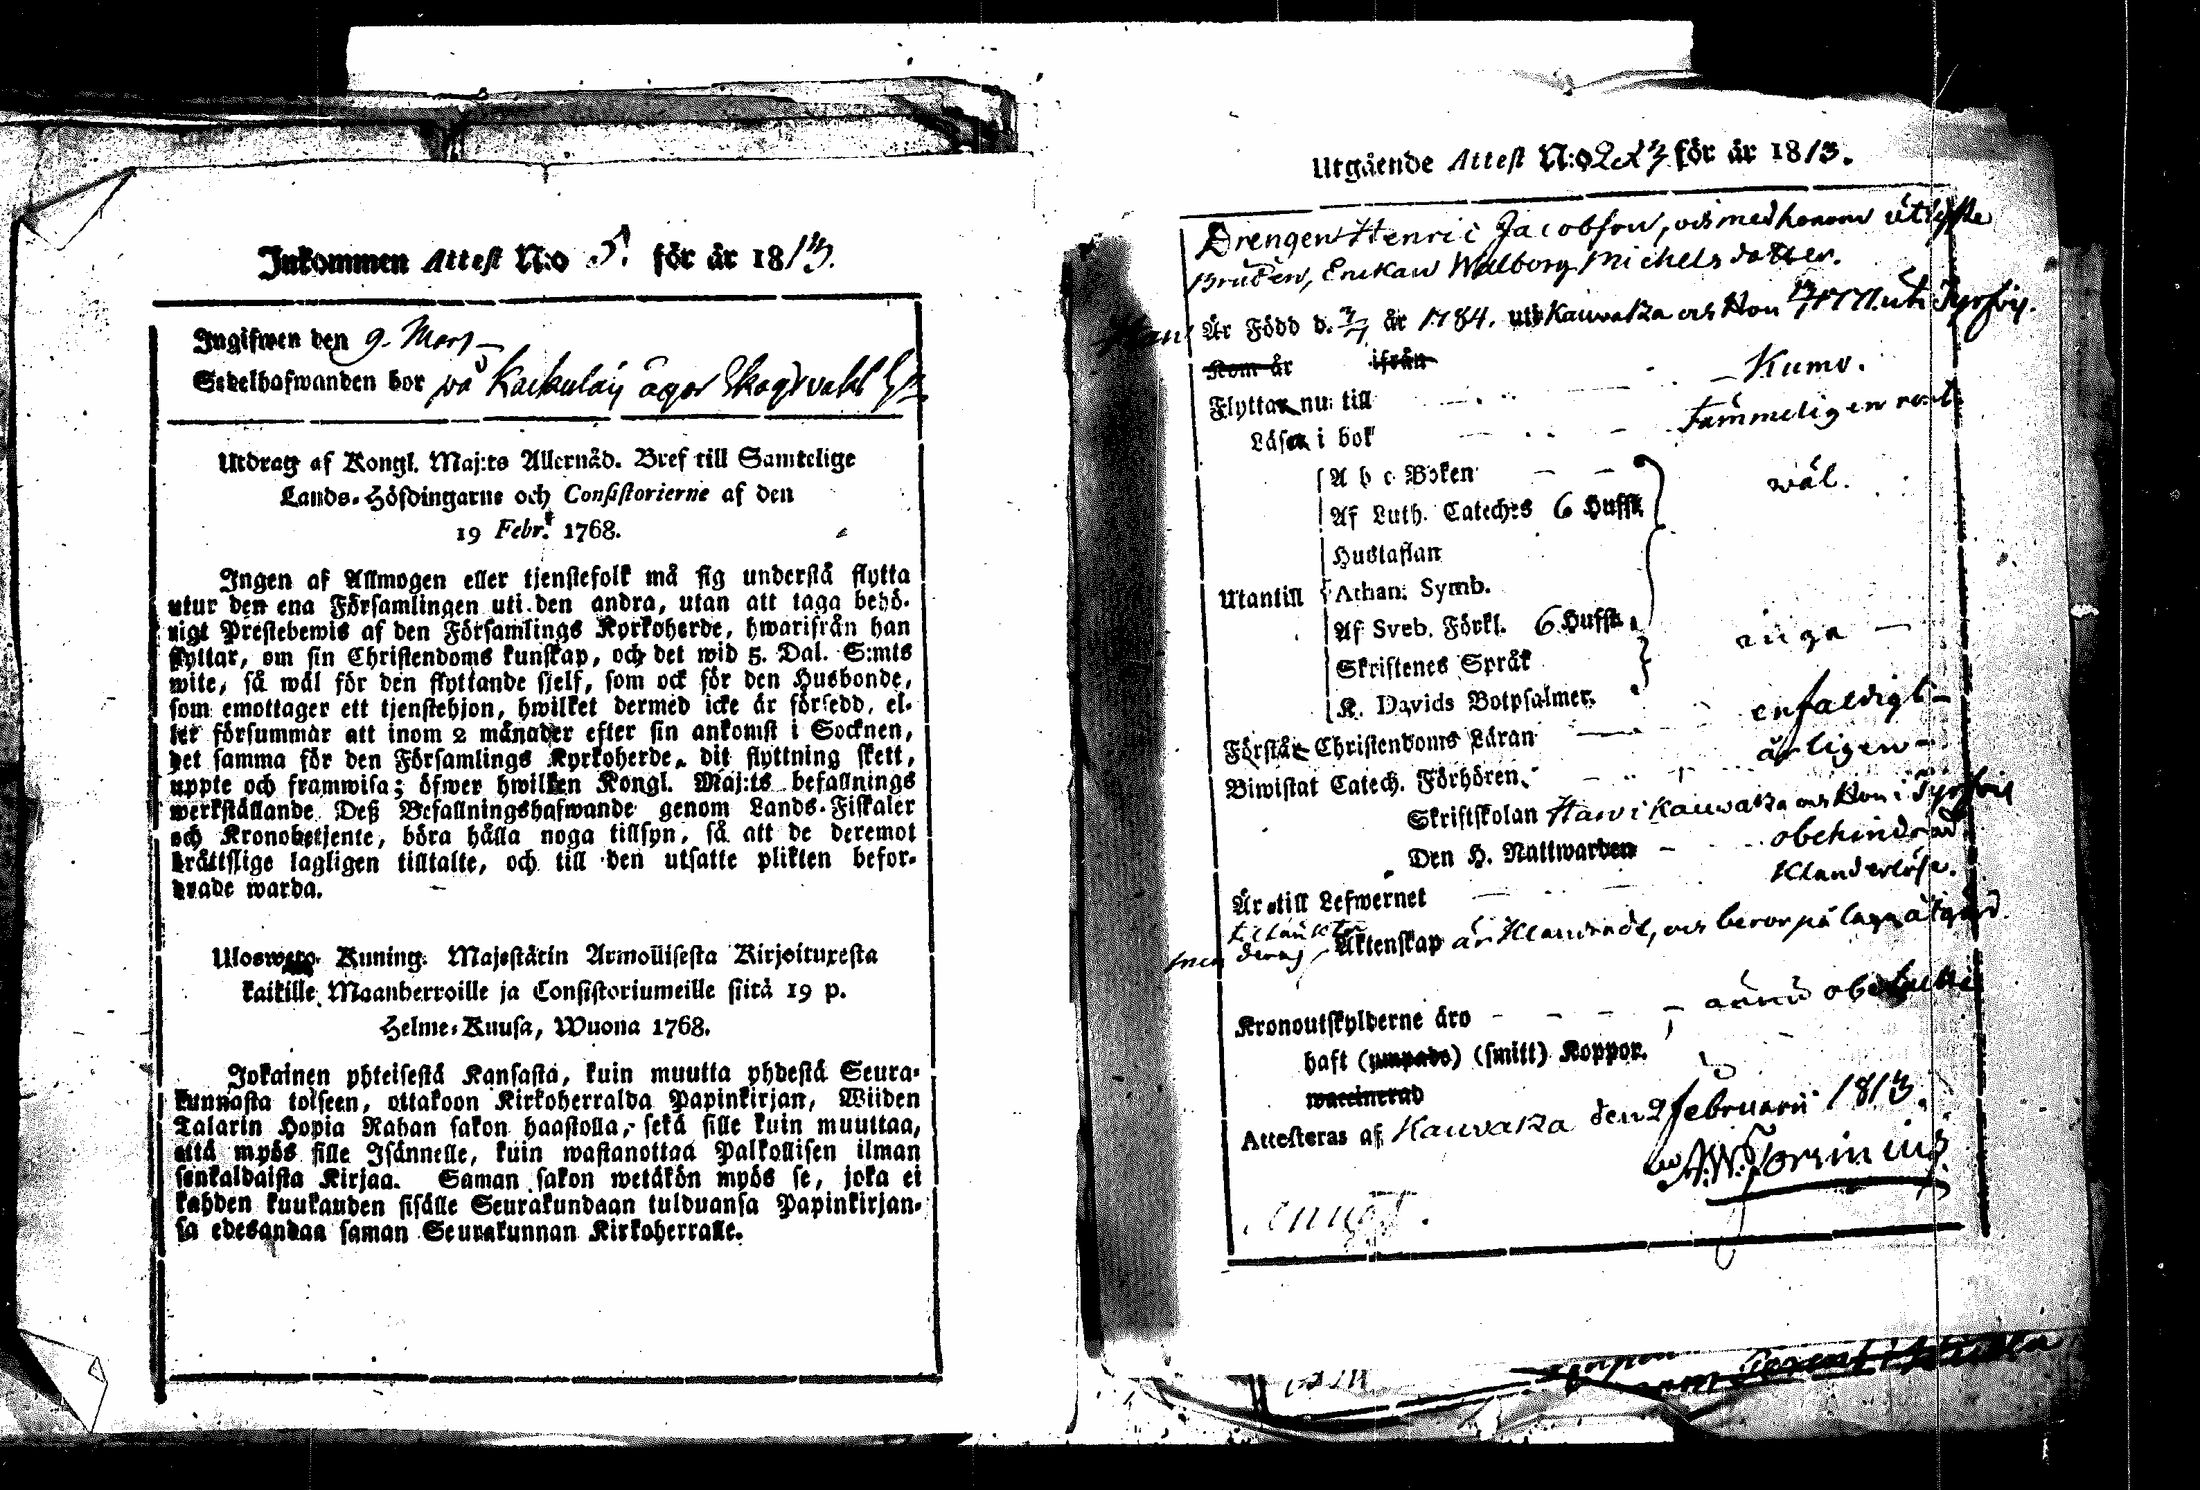 Inkommen Attest N:o 5. för år 1813.
Ingifwen den 9. Mars
Sedelhafwanden bor på
Utdrag af Kongl. Maj:ts Allernåd. Bref till Samtelige
Lands-Höfdingarne och Consistorierne af den
19 Febr. 1768.
Ingen af Allmogen eller tjenstefolk må sig understå flytta
utur den ena Församlingen uti den andra, utan att taga behö-
rigt Prestebewis af den Församlings Kyrkoherde, hwarifrån han
flyttar, om sin Christendoms kunskap, och det wid 5. Dal. S:mts
wite, så wäl för den flyttande sjelf, som ock för den Husbonde,
som emottager ett tjenstehjon, hwilket dermed icke är försedd, el-
ler försummar att inom 2 månader efter sin ankomst i Socknen,
det samma för den Församlings Kyrkoherde, dit flyttning skett,
uppte och framwisa; öfwer hwilken Kongl. Maj:ts befallnings
werkställande Deß Befallningshafwande genom Lands-Fiskaler
och Kronobetjente, böra hålla noga tillsyn, så att de deremot
brättslige lagligen tilltalte, och till den utsatte plikten befor-
drade warda.
Uloswето Kuning. Majestätin Armollisesta Kirjoituxesta
kaikille Maanherroille ja Consistoriumeille siitä 19 p.
Helme-Kuusa, Wuona 1768.
Jokainen yhteisestä Kansasta, kuin muutta yhdestä Seura-
kunnasta toiseen, ottakoon Kirkoherralda Papinkirjan, Wiiden
Talarin Hopia Rahan sakon haastolla, sekä sille kuin muuttaa,
että myös sille Isännelle, kuin wastanottaa Palkollisen ilman
senkaldaista Kirjaa. Saman sakon wetäkön myös se, joka ei
kahden kuukauden sisälle Seurakundaan tulduansa Papinkirjan-
sa edesandaa saman Seurakunnan Kirkoherralle.
Utgående Attest N:o 2 & 3 för år 1813.
Drengen Henric Jacobson, och med honom utlyste
Bruden, Enkan Walborg Michelsdotter.
Han Är Född d. år 1784. uti Kauvatza och Hon uti Tyrfvis.
Kom år ifrån
Flyttar nu till Kumo.
Läser i bok tämmeligen rent
A b c Boken
Af Luth. Cateches 6 Hufst. wäl.
Hustaflan
Utantill Athan. Symb.
Af Sveb. Förkl. 6 Hufst.
Skriftenes Språk
K. Davids Botpsalmer.
Förstår Christendoms Läran enfaldigt
Biwistat Catech. Förhören. årligen
Skriftskolan Han i Kauvatza och Hon i Tyrfvis
Den H. Nattwarden obehindrad
Är till Lefwernet klanderlöse.
men deras tilltänkte Äktenskap är Klandradt, och beror på laga åtgärd.
Kronoutskylderne äro ännu obetalte
haft (ympade) (smitt) Koppor.
waccinerad
Attesteras af Kauvatza den 2 Februarii 1813.